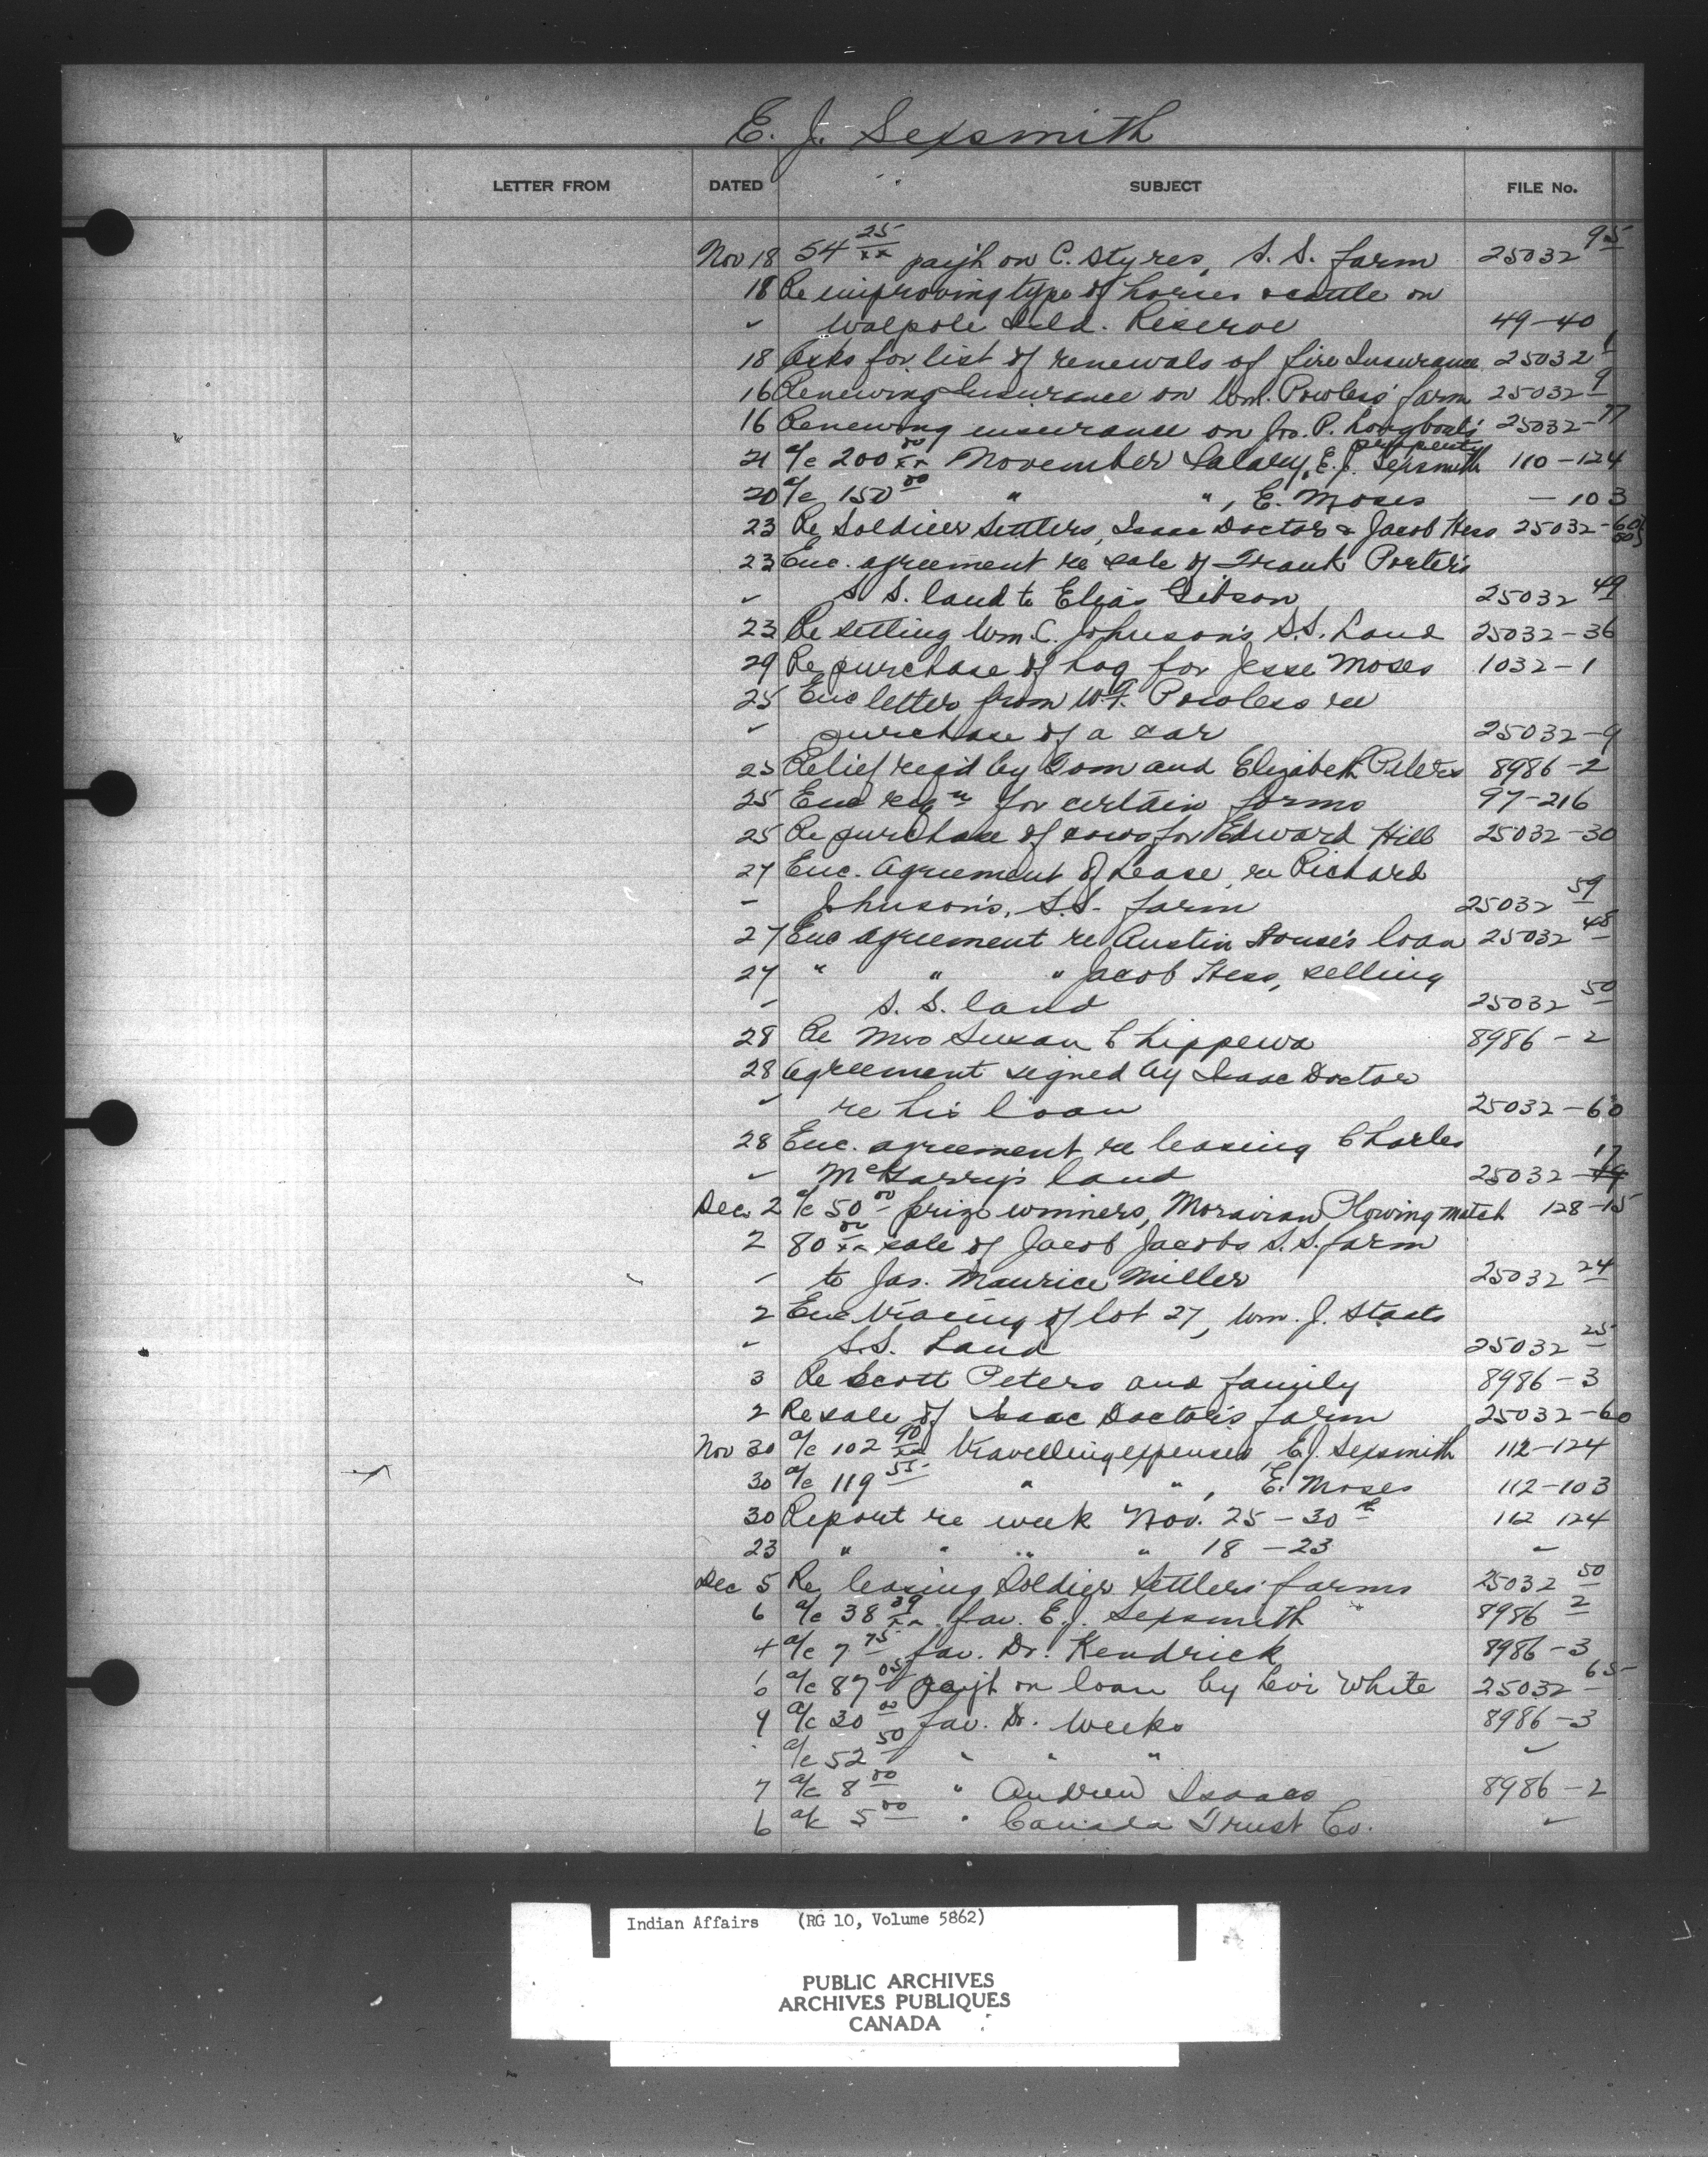 E. J. Sexsmith
LETTER FROM DATED SUBJECT FILE No.
Nov 18 54 25/xx paym't on C. Styres, S. S. farm 25032 95
18 Re improving type of horses & cattle on
" Walpole Isld. Reserve 49-40
18 Asks for list of renewals of fire Insurance 25032 1
16 Renewing Insurance on Wm. Powless' farm 25032 9
16 Renewing insurance on Jno. P. Longboat's property 25032-77
21 a/c 200 00/xx November Salary, E. J. Sexsmith 110-124
20 a/c 150 00 " ", E. Moses -103
23 Re Soldier Settlers, Isaac Doctor & Jacob Hess 25032-60 50
23 Enc. agreement re sale of Frank Porter's
" S. S. land to Elias Gibson 25032 49
23 Re selling Wm. C. Johnson's S.S. Land 25032-36
29 Re purchase of hog for Jesse Moses 1032-1
25 Enc letter from W.F. Powless re
" purchase of a car 25032-9
25 Relief req'd by Tom and Elizabeth Peters 8986-2
25 Enc reqn for certain forms 97-216
25 Re purchase of cows for Edward Hill 25032-30
27 Enc. Agreement of Lease, re Richard
- Johnson's, S.S. farm 25032 59
27 Enc agreement re Austin House's loan 25032 48
27 " " " Jacob Hess, selling
- S. S. land 25032 50
28 Re Mrs Susan Chippewa 8986-2
28 Agreement signed by Isaac Doctor
" re his loan 25032-60
28 Enc. agreement re leasing Charles
" McGarry's land 25032-17
Dec 2 a/c 50 00 prize winners, Moravian Plowing match 128-15
2 80 00/xx sale of Jacob Jacobs S. S. farm
- to Jas. Maurice Miller 25032 24
2 Enc tracing of lot 27, Wm. J. Staats
" S.S. Land 25032 25
3 Re Scott Peters and family 8986-3
2 Re sale of Isaac Doctor's farm 25032-60
Nov 30 a/c 102 90/xx travelling expenses E.J. Sexsmith 112-124
30 a/c 119 55 " ", E. Moses 112-103
30 Report re week Nov. 25-30th 112 124
23 " " " " 18-23 "
Dec 5 Re leasing Soldier Settlers' farms 25032 50
6 a/c 38 39/xx fav. E.J. Sexsmith 8986 2
4 a/c 7 75 fav. Dr. Kendrick 8986-3
6 a/c 87 05 paym't on loan by Levi White 25032-65
9 a/c 30 00 fav. Dr. Weeks 8986-3
a/c 52 50 " " " "
7 a/c 8 00 " Andrew Isaacs 8986-2
6 a/c 5 00 " Canada Trust Co. "
Indian Affairs (RG 10, Volume 5862)
PUBLIC ARCHIVES
ARCHIVES PUBLIQUES
CANADA